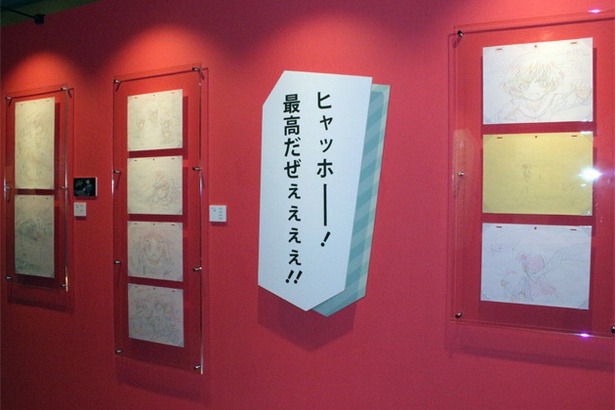 ヒャッホ――！
最高だぜぇぇぇぇ!!